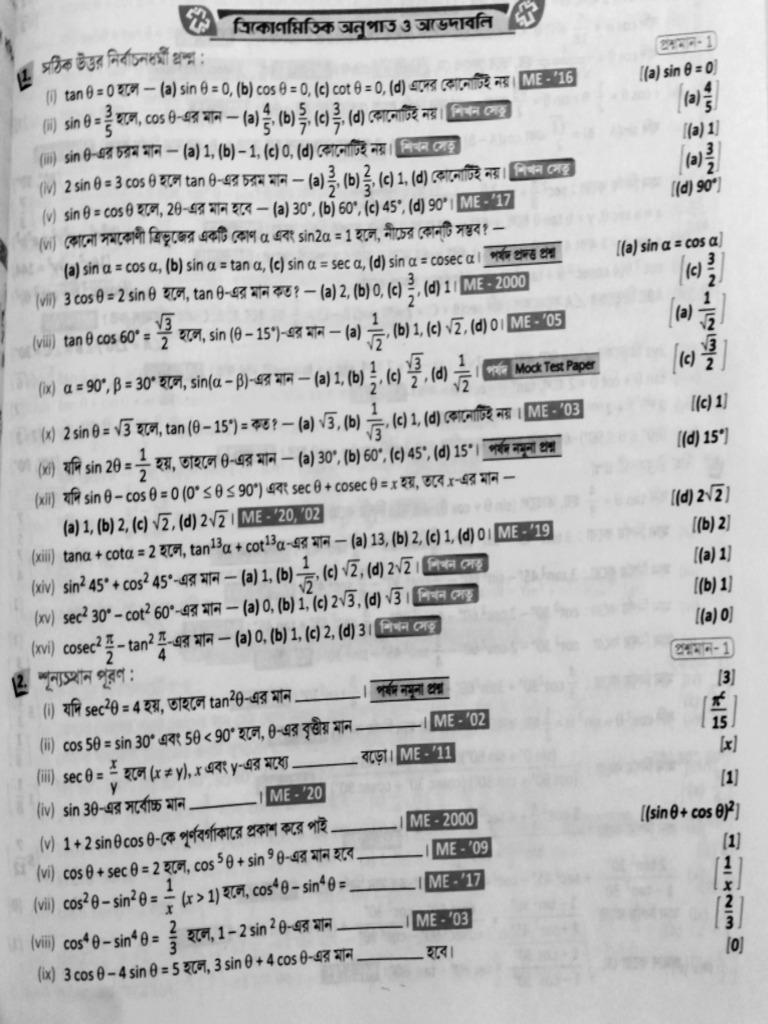 ত্রিকোণমিতিক অনুপাত ও অভেদাবলি
1. সঠিক উত্তর নির্বাচনধর্মী প্রশ্ন : প্রশ্নমান- 1
(i) tan θ = 0 হলে — (a) sin θ = 0, (b) cos θ = 0, (c) cot θ = 0, (d) এদের কোনোটিই নয়। ME - '16 [(a) sin θ = 0]
(ii) sin θ = 3/5 হলে, cos θ-এর মান — (a) 4/5, (b) 5/7, (c) 3/7, (d) কোনোটিই নয়। শিখন সেতু [(a) 4/5]
(iii) sin θ-এর চরম মান — (a) 1, (b) – 1, (c) 0, (d) কোনোটিই নয়। শিখন সেতু [(a) 1]
(iv) 2 sin θ = 3 cos θ হলে tan θ-এর চরম মান — (a) 3/2, (b) 2/3, (c) 1, (d) কোনোটিই নয়। শিখন সেতু [(a) 3/2]
(v) sin θ = cos θ হলে, 2θ-এর মান হবে — (a) 30°, (b) 60°, (c) 45°, (d) 90°। ME - '17 [(d) 90°]
(vi) কোনো সমকোণী ত্রিভুজের একটি কোণ α এবং sin2α = 1 হলে, নীচের কোন্‌টি সম্ভব? —
(a) sin α = cos α, (b) sin α = tan α, (c) sin α = sec α, (d) sin α = cosec α। পর্ষদ প্রদত্ত প্রশ্ন [(a) sin α = cos α]
(vii) 3 cos θ = 2 sin θ হলে, tan θ-এর মান কত? — (a) 2, (b) 0, (c) 3/2, (d) 1। ME - 2000 [(c) 3/2]
(viii) tan θ cos 60° = √3/2 হলে, sin (θ – 15°)-এর মান — (a) 1/√2, (b) 1, (c) √2, (d) 0। ME - '05 [(a) 1/√2]
(ix) α = 90°, β = 30° হলে, sin(α – β)-এর মান — (a) 1, (b) 1/2, (c) √3/2, (d) 1/√2। পর্ষদ Mock Test Paper [(c) √3/2]
(x) 2 sin θ = √3 হলে, tan (θ – 15°) = কত? — (a) √3, (b) 1/√3, (c) 1, (d) কোনোটিই নয় । ME - '03 [(c) 1]
(xi) যদি sin 2θ = 1/2 হয়, তাহলে θ-এর মান — (a) 30°, (b) 60°, (c) 45°, (d) 15°। পর্ষদ নমুনা প্রশ্ন [(d) 15°]
(xii) যদি sin θ – cos θ = 0 (0° ≤ θ ≤ 90°) এবং sec θ + cosec θ = x হয়, তবে x-এর মান —
(a) 1, (b) 2, (c) √2, (d) 2√2। ME - '20, '02 [(d) 2√2]
(xiii) tanα + cotα = 2 হলে, tan¹³α + cot¹³α-এর মান — (a) 13, (b) 2, (c) 1, (d) 0। ME - '19 [(b) 2]
(xiv) sin² 45° + cos² 45°-এর মান — (a) 1, (b) 1/√2, (c) √2, (d) 2√2। শিখন সেতু [(a) 1]
(xv) sec² 30° – cot² 60°-এর মান — (a) 0, (b) 1, (c) 2√3, (d) √3। শিখন সেতু [(b) 1]
(xvi) cosec² π/2 – tan² π/4-এর মান — (a) 0, (b) 1, (c) 2, (d) 3। শিখন সেতু [(a) 0]
2. শূন্যস্থান পূরণ : প্রশ্নমান- 1
(i) যদি sec²θ = 4 হয়, তাহলে tan²θ-এর মান ______। পর্ষদ নমুনা প্রশ্ন [3]
(ii) cos 5θ = sin 30° এবং 5θ < 90° হলে, θ-এর বৃত্তীয় মান ______। ME - '02 [πᶜ/15]
(iii) sec θ = x/y হলে (x ≠ y), x এবং y-এর মধ্যে ______ বড়ো। ME - '11 [x]
(iv) sin 3θ-এর সর্বোচ্চ মান ______। ME - '20 [1]
(v) 1 + 2 sin θ cos θ-কে পূর্ণবর্গাকারে প্রকাশ করে পাই ______। ME - 2000 [(sin θ + cos θ)²]
(vi) cos θ + sec θ = 2 হলে, cos ⁵ θ + sin ⁹ θ-এর মান হবে ______। ME - '09 [1]
(vii) cos² θ – sin² θ = 1/x (x > 1) হলে, cos⁴ θ – sin⁴ θ = ______। ME - '17 [1/x]
(viii) cos⁴ θ – sin⁴ θ = 2/3 হলে, 1 – 2 sin ² θ-এর মান ______। ME - '03 [2/3]
(ix) 3 cos θ – 4 sin θ = 5 হলে, 3 sin θ + 4 cos θ-এর মান ______ হবে। [0]